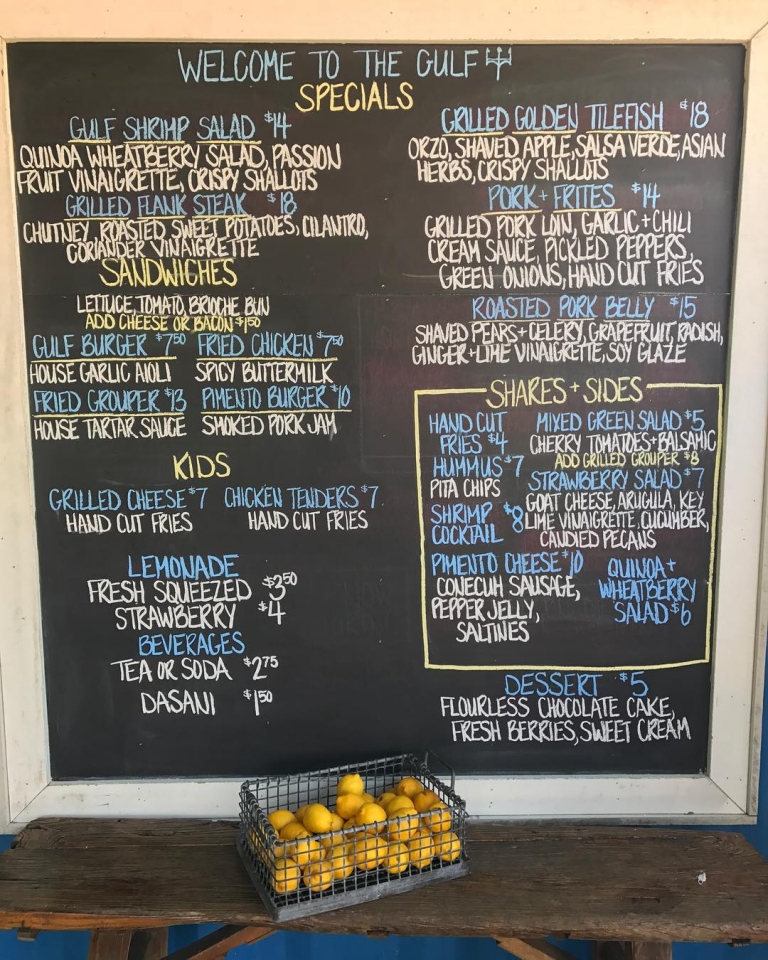 WELCOME TO THE GULF
SPECIALS
GULF SHRIMP SALAD $14
QUINOA WHEATBERRY SALAD, PASSION
FRUIT VINAIGRETTE, CRISPY SHALLOTS
GRILLED FLANK STEAK $18
CHUTNEY, ROASTED SWEET POTATOES, CILANTRO,
CORIANDER VINAIGRETTE
SANDWICHES
LETTUCE, TOMATO, BRIOCHE BUN
ADD CHEESE OR BACON $1.50
GULF BURGER $7.50 FRIED CHICKEN $7.50
HOUSE GARLIC AIOLI SPICY BUTTERMILK
FRIED GROUPER $13 PIMENTO BURGER $10
HOUSE TARTAR SAUCE SMOKED PORK JAM
KIDS
GRILLED CHEESE $7 CHICKEN TENDERS $7
HAND CUT FRIES HAND CUT FRIES
LEMONADE
FRESH SQUEEZED $3.50
STRAWBERRY $4
BEVERAGES
TEA OR SODA $2.75
DASANI $1.50
GRILLED GOLDEN TILEFISH $18
ORZO, SHAVED APPLE, SALSA VERDE, ASIAN
HERBS, CRISPY SHALLOTS
PORK + FRITES $14
GRILLED PORK LOIN, GARLIC + CHILI
CREAM SAUCE, PICKLED PEPPERS,
GREEN ONIONS, HAND CUT FRIES
ROASTED PORK BELLY $15
SHAVED PEARS + CELERY, GRAPEFRUIT, RADISH,
GINGER + LIME VINAIGRETTE, SOY GLAZE
SHARES + SIDES
HAND CUT
FRIES $4
HUMMUS $7
PITA CHIPS
SHRIMP $8
COCKTAIL
PIMENTO CHEESE $10
CONECUH SAUSAGE,
PEPPER JELLY,
SALTINES
MIXED GREEN SALAD $5
CHERRY TOMATOES + BALSAMIC
ADD GRILLED GROUPER $8
STRAWBERRY SALAD $7
GOAT CHEESE, ARUGULA, KEY
LIME VINAIGRETTE, CUCUMBER,
CANDIED PECANS
QUINOA +
WHEATBERRY
SALAD $6
DESSERT $5
FLOURLESS CHOCOLATE CAKE,
FRESH BERRIES, SWEET CREAM